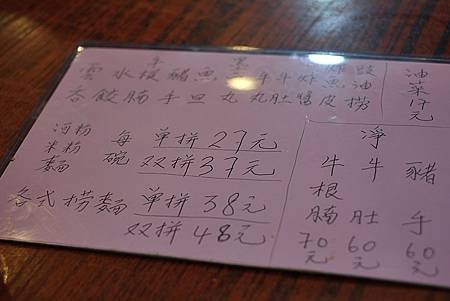 雲吞
水餃
牛根腩
豬手
魚旦
墨丸
牛丸
牛肚
炸醬
魚皮
豉油撈
油菜17元
河粉
米粉
麵
每碗
单拼 27元
双拼 37元
各式撈麵 单拼 38元
双拼 48元
淨
牛根腩 70元
牛肚 60元
豬手 60元